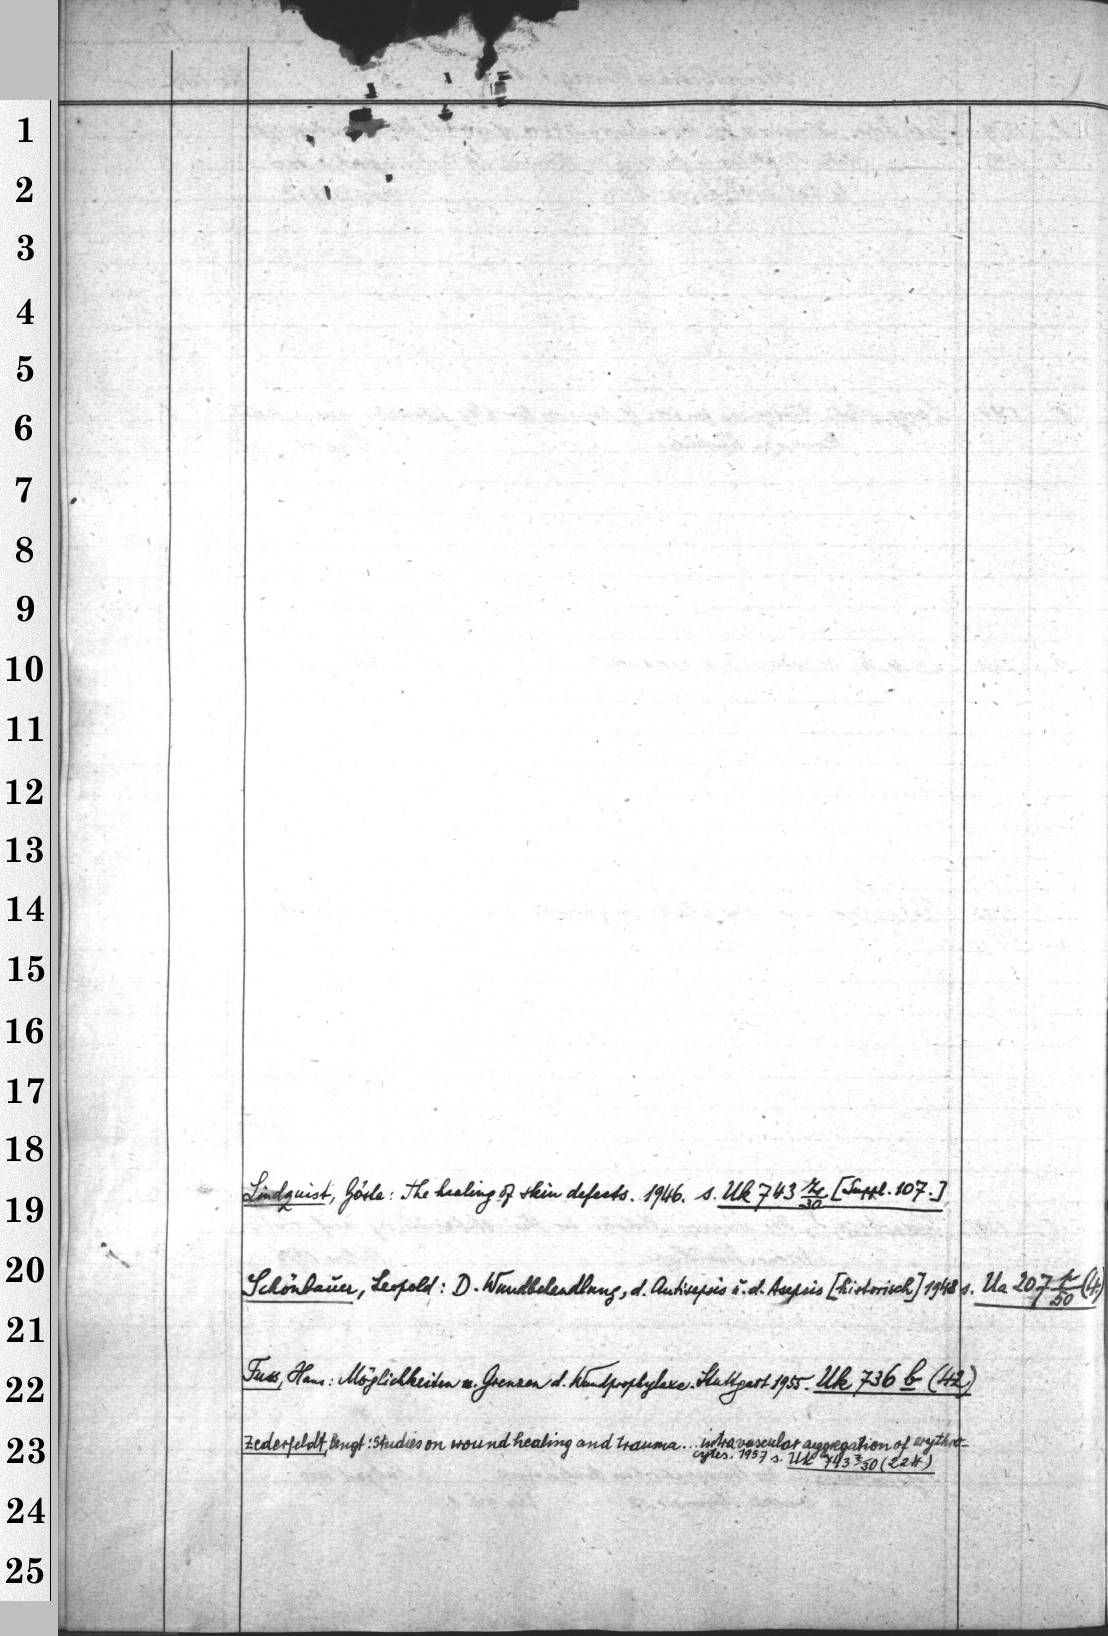 1
2
3
4
5
6
7
8
9
10
11
12
13
14
15
16
17
18
Lindquist, Gösta: The healing of skin defects. 1946. s. Uk 743 /30 [Suppl. 107.]
19
20
Schönbauer, Leopold: D. Wundbehandlung, d. Antisepsis u. d. Asepsis [historisch] 1948 s. Ua 207 /50 (4)
21
Fuss, Hans: Möglichkeiten u. Grenzen d. Wundprophylaxe. Stuttgart 1955. Uk 736 b (42)
22
Zederfeldt, Bengt: Studies on wound healing and trauma... intravascular aggregation of erythro-
23
cytes. 1957 s. Uk 743 z/30 (224)
24
25